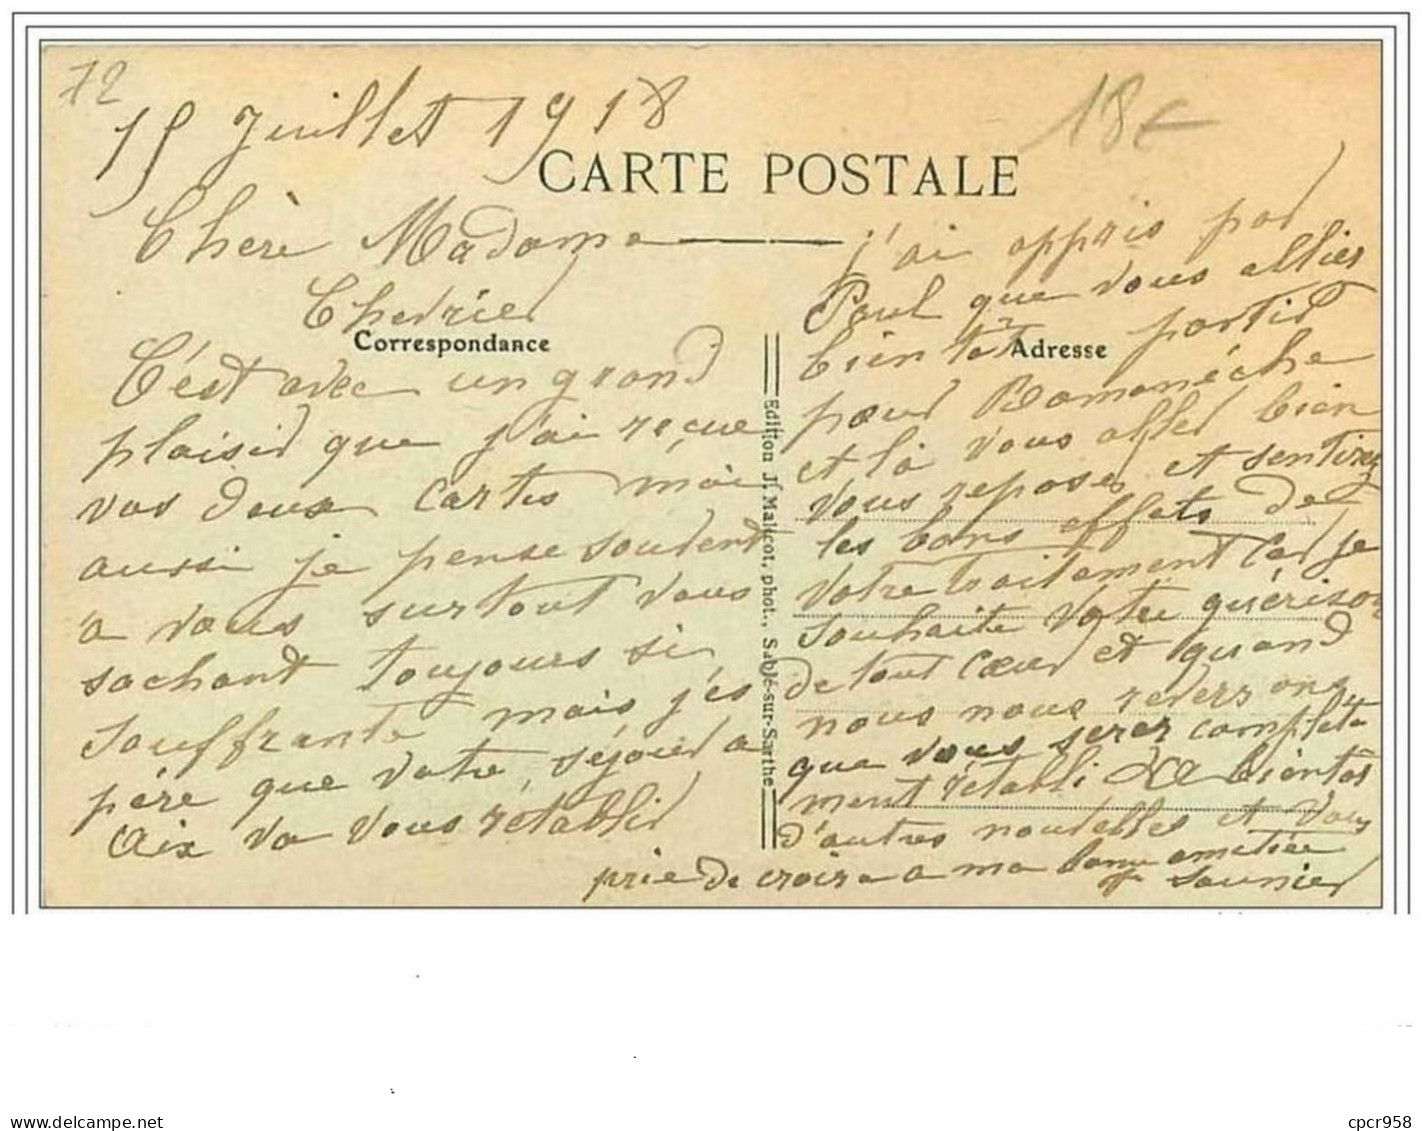 72
15 Juillet 1918
18€
CARTE POSTALE
Chère Madame
Chevrier
Correspondance
C'est avec un grand
plaisir que j'ai reçue
vos deux cartes moi
aussi je pense souvent
a vous surtout vous
sachant toujours si
souffrante mais j'és
père que votre séjour a
Aix va vous rétablir
Edition J. Malicot, phot., Sablé-sur-Sarthe
j'ai appris par
Paul que vous alliez
bientôt partir
Adresse
pour Romanéche
et là vous aller bien
vous reposer et sentirez
les bons effets de
votre traitement car je
souhaite votre guérison
de tout cœur et quand
nous nous reverrons
que vous serez complète
ment rétabli a bientot
d'autres nouvelles et vous
prie de croire a ma bonne amitiée
Saunier
www.delcampe.net
cpcr958